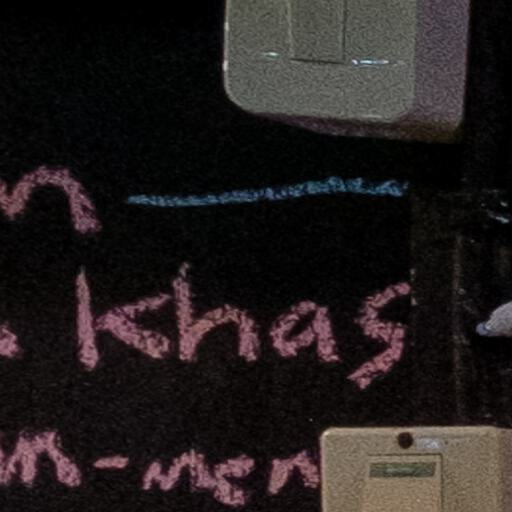 n
khas
m-men